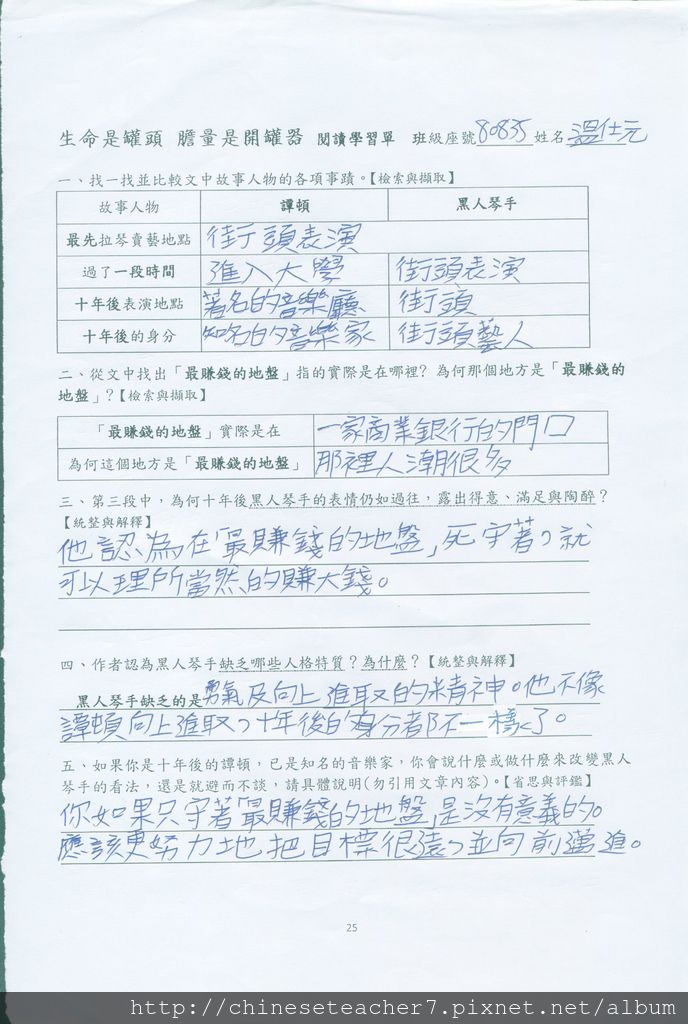 生命是罐頭 膽量是開罐器 閱讀學習單 班級座號80835姓名溫仕元
一、找一找並比較文中故事人物的各項事蹟。【檢索與擷取】
故事人物 譚頓 黑人琴手
最先拉琴賣藝地點 街頭表演
過了一段時間 進入大學 街頭表演
十年後表演地點 著名的音樂廳 街頭
十年後的身分 知名的音樂家 街頭藝人
二、從文中找出「最賺錢的地盤」指的實際是在哪裡?為何那個地方是「最賺錢的
地盤」?【檢索與擷取】
「最賺錢的地盤」實際是在 一家商業銀行的門口
為何這個地方是「最賺錢的地盤」 那裡人潮很多
三、第三段中,為何十年後黑人琴手的表情仍如過往,露出得意、滿足與陶醉?
【統整與解釋】
他認為在「最賺錢的地盤」死守著,就
可以理所當然的賺大錢。
四、作者認為黑人琴手缺乏哪些人格特質?為什麼?【統整與解釋】
黑人琴手缺乏的是勇氣及向上進取的精神。他不像
譚頓向上進取,十年後的身分都不一樣了。
五、如果你是十年後的譚頓,已是知名的音樂家,你會說什麼或做什麼來改變黑人
琴手的看法,還是就避而不談,請具體說明(勿引用文章內容)。【省思與評鑑】
你如果只守著「最賺錢的地盤」是沒有意義的。
應該更努力地把目標很遠,並向前邁進。
25
http://chineseteacher7.pixnet.net/album